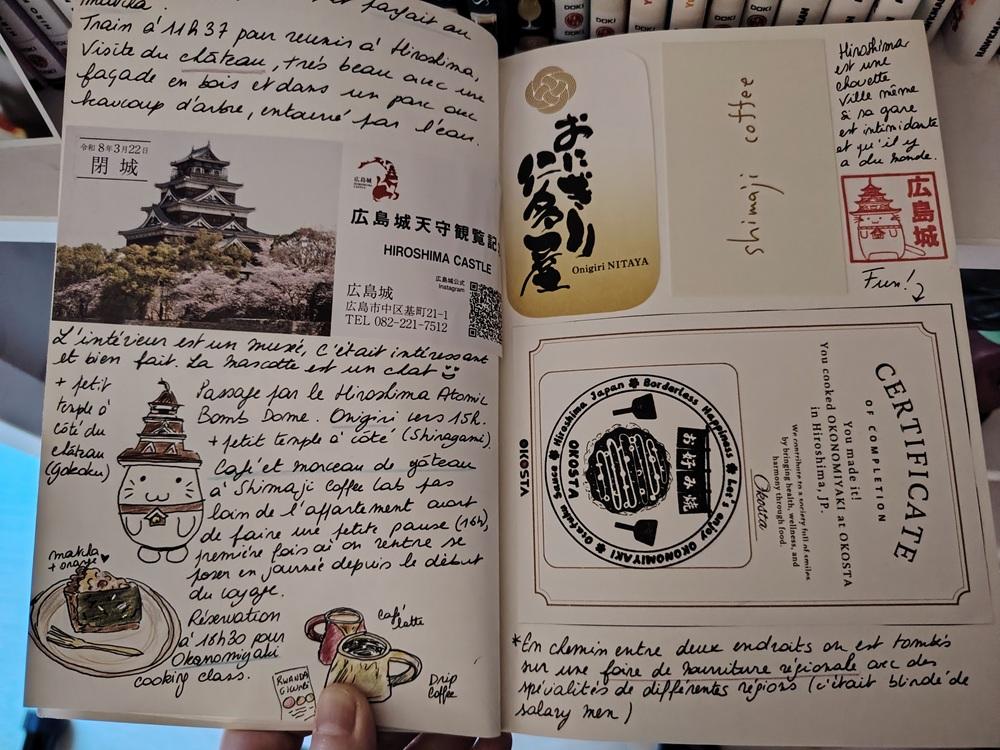 parfait au
Train à 11h37 pour revenir à Hiroshima.
Visite du château, très beau avec une
façade en bois et dans un parc avec
beaucoup d'arbre, entouré par l'eau.
令和8年3月22日
閉城
広島城
広島城天守観覧記
HIROSHIMA CASTLE
広島城公式
Instagram
広島城
広島市中区基町21-1
TEL 082-221-7512
L'intérieur est un musé, c'était intéressant
et bien fait. La mascotte est un chat
+ petit
temple à
côté du
château
(gokoku)
Passage par le Hiroshima Atomic
Bomb Dome. Onigiri vers 15h.
+ petit temple à côté (Shiragami)
Café et morceau de gâteau
à Shimaji Coffee Lab pas
loin de l'appartement avant
de faire une petite pause (16h)
première fois où on rentre se
poser en journée depuis le début
du voyage.
matcha
+ orange
Réservation
à 18h30 pour
Okonomiyaki
cooking class.
café latte
RWANDA
Drip
Coffee
おにぎり
仁多屋
Onigiri NITAYA
shimaji coffee
Hiroshima
est une
chouette
ville même
si sa gare
est intimidante
et qu'il y
a du monde.
広島城
Fun!
CERTIFICATE
OF COMPLETION
You made it!
You cooked OKONOMIYAKI at OKOSTA
in Hiroshima, JP.
We contribute to a society full of smiles
by bringing health, wellness, and
harmony through food.
Okosta
Hiroshima Japan Borderless Happiness Let's enjoy OKONOMIYAKI Otafuku Sauce
お好み焼
OKOSTA
OKOSTA
*En chemin entre deux endroits on est tombés
sur une foire de nourriture régionale avec des
spécialités de différentes régions (c'était blindé de
salary men)